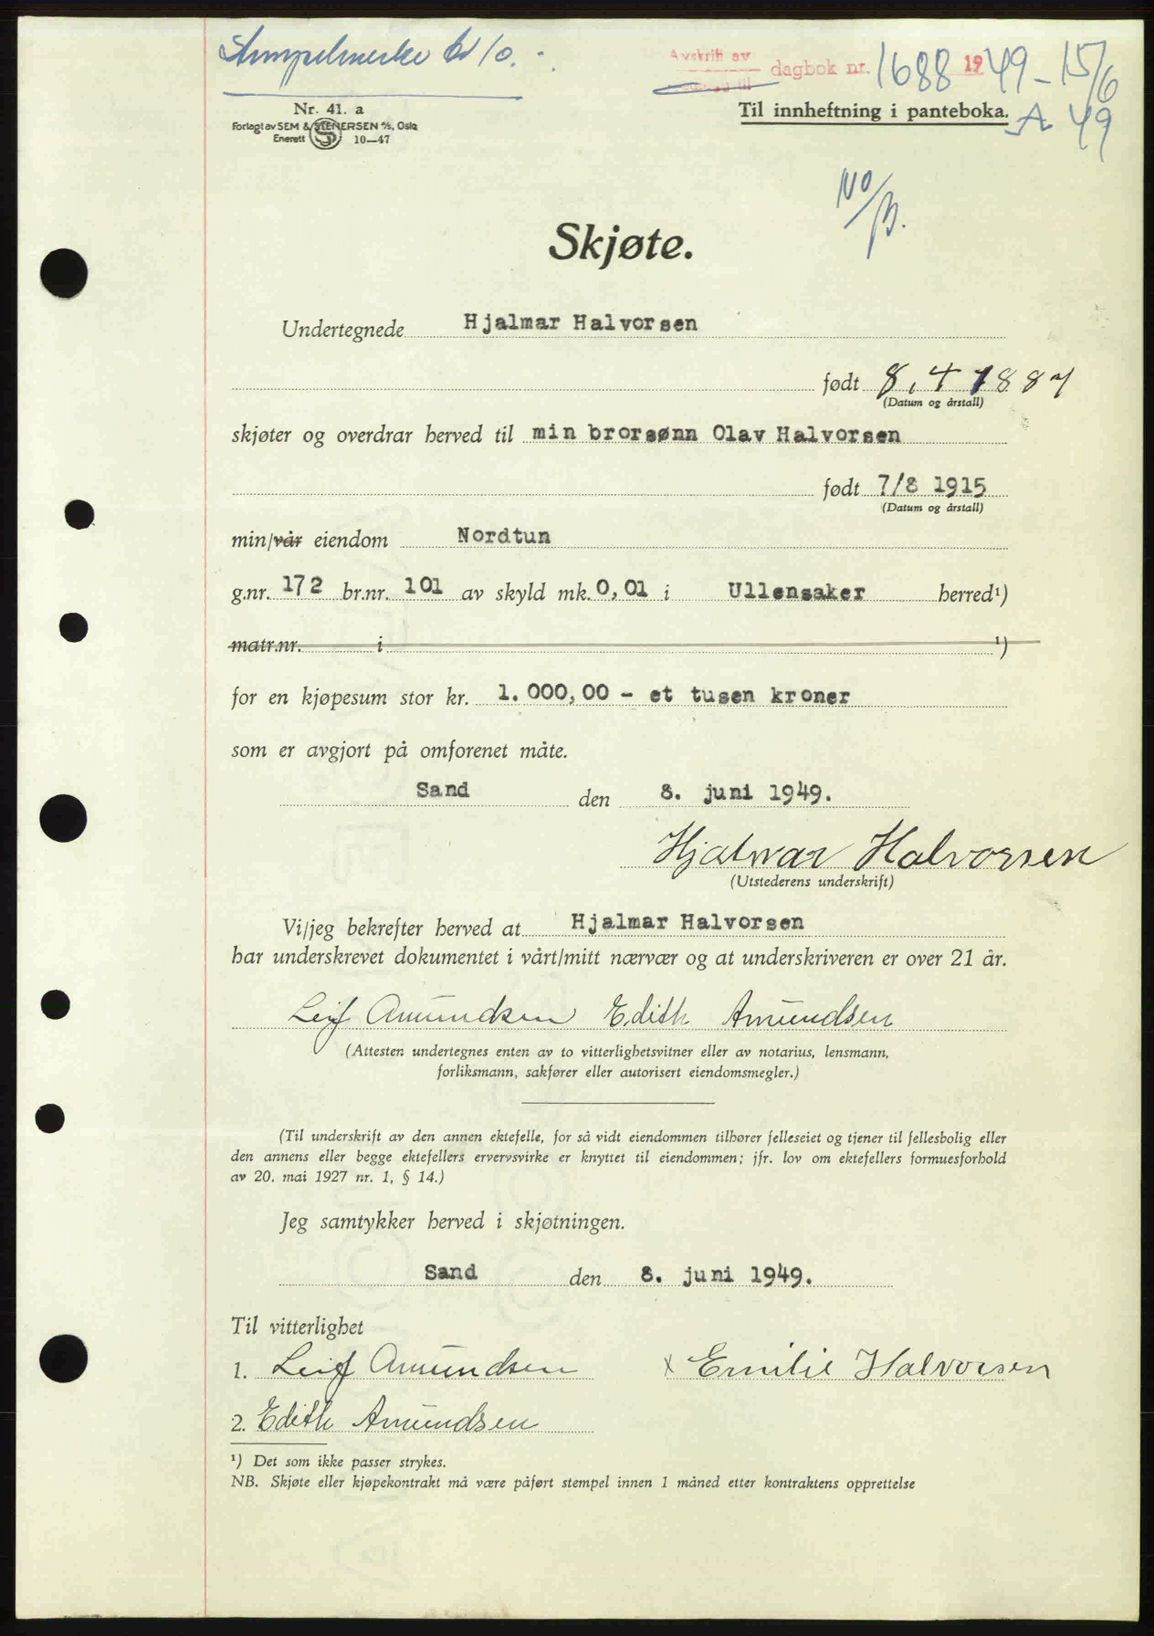 Stempelmerke kr 10.-
Avskrift av
dagbok nr. 1688 1949 - 15/6
Til innheftning i panteboka. A 49
Nr. 41. a
Forlagt av SEM & STENERSEN A/S, Oslo
Enerett 10—47
Skjøte.
Undertegnede Hjalmar Halvorsen
født 8.4 1887
(Datum og årstall)
skjøter og overdrar herved til min brorsønn Olav Halvorsen
født 7/8 1915
(Datum og årstall)
min/vår eiendom Nordtun
g.nr. 172 br.nr. 101 av skyld mk. 0,01 i Ullensaker herred¹)
matr.nr. i ¹)
for en kjøpesum stor kr. 1.000,00 - et tusen kroner
som er avgjort på omforenet måte.
Sand den 8. juni 1949.
Hjalmar Halvorsen
(Utstederens underskrift)
Vi/jeg bekrefter herved at Hjalmar Halvorsen
har underskrevet dokumentet i vårt/mitt nærvær og at underskriveren er over 21 år.
Leif Amundsen Edith Amundsen
(Attesten undertegnes enten av to vitterlighetsvitner eller av notarius, lensmann,
forliksmann, sakfører eller autorisert eiendomsmegler.)
(Til underskrift av den annen ektefelle, for så vidt eiendommen tilhører felleseiet og tjener til fellesbolig eller
den annens eller begge ektefellers ervervsvirke er knyttet til eiendommen; jfr. lov om ektefellers formuesforhold
av 20. mai 1927 nr. 1, § 14.)
Jeg samtykker herved i skjøtningen.
Sand den 8. juni 1949.
Til vitterlighet
1. Leif Amundsen x Emilie Halvorsen
2. Edith Amundsen
¹) Det som ikke passer strykes.
NB. Skjøte eller kjøpekontrakt må være påført stempel innen 1 måned etter kontraktens opprettelse